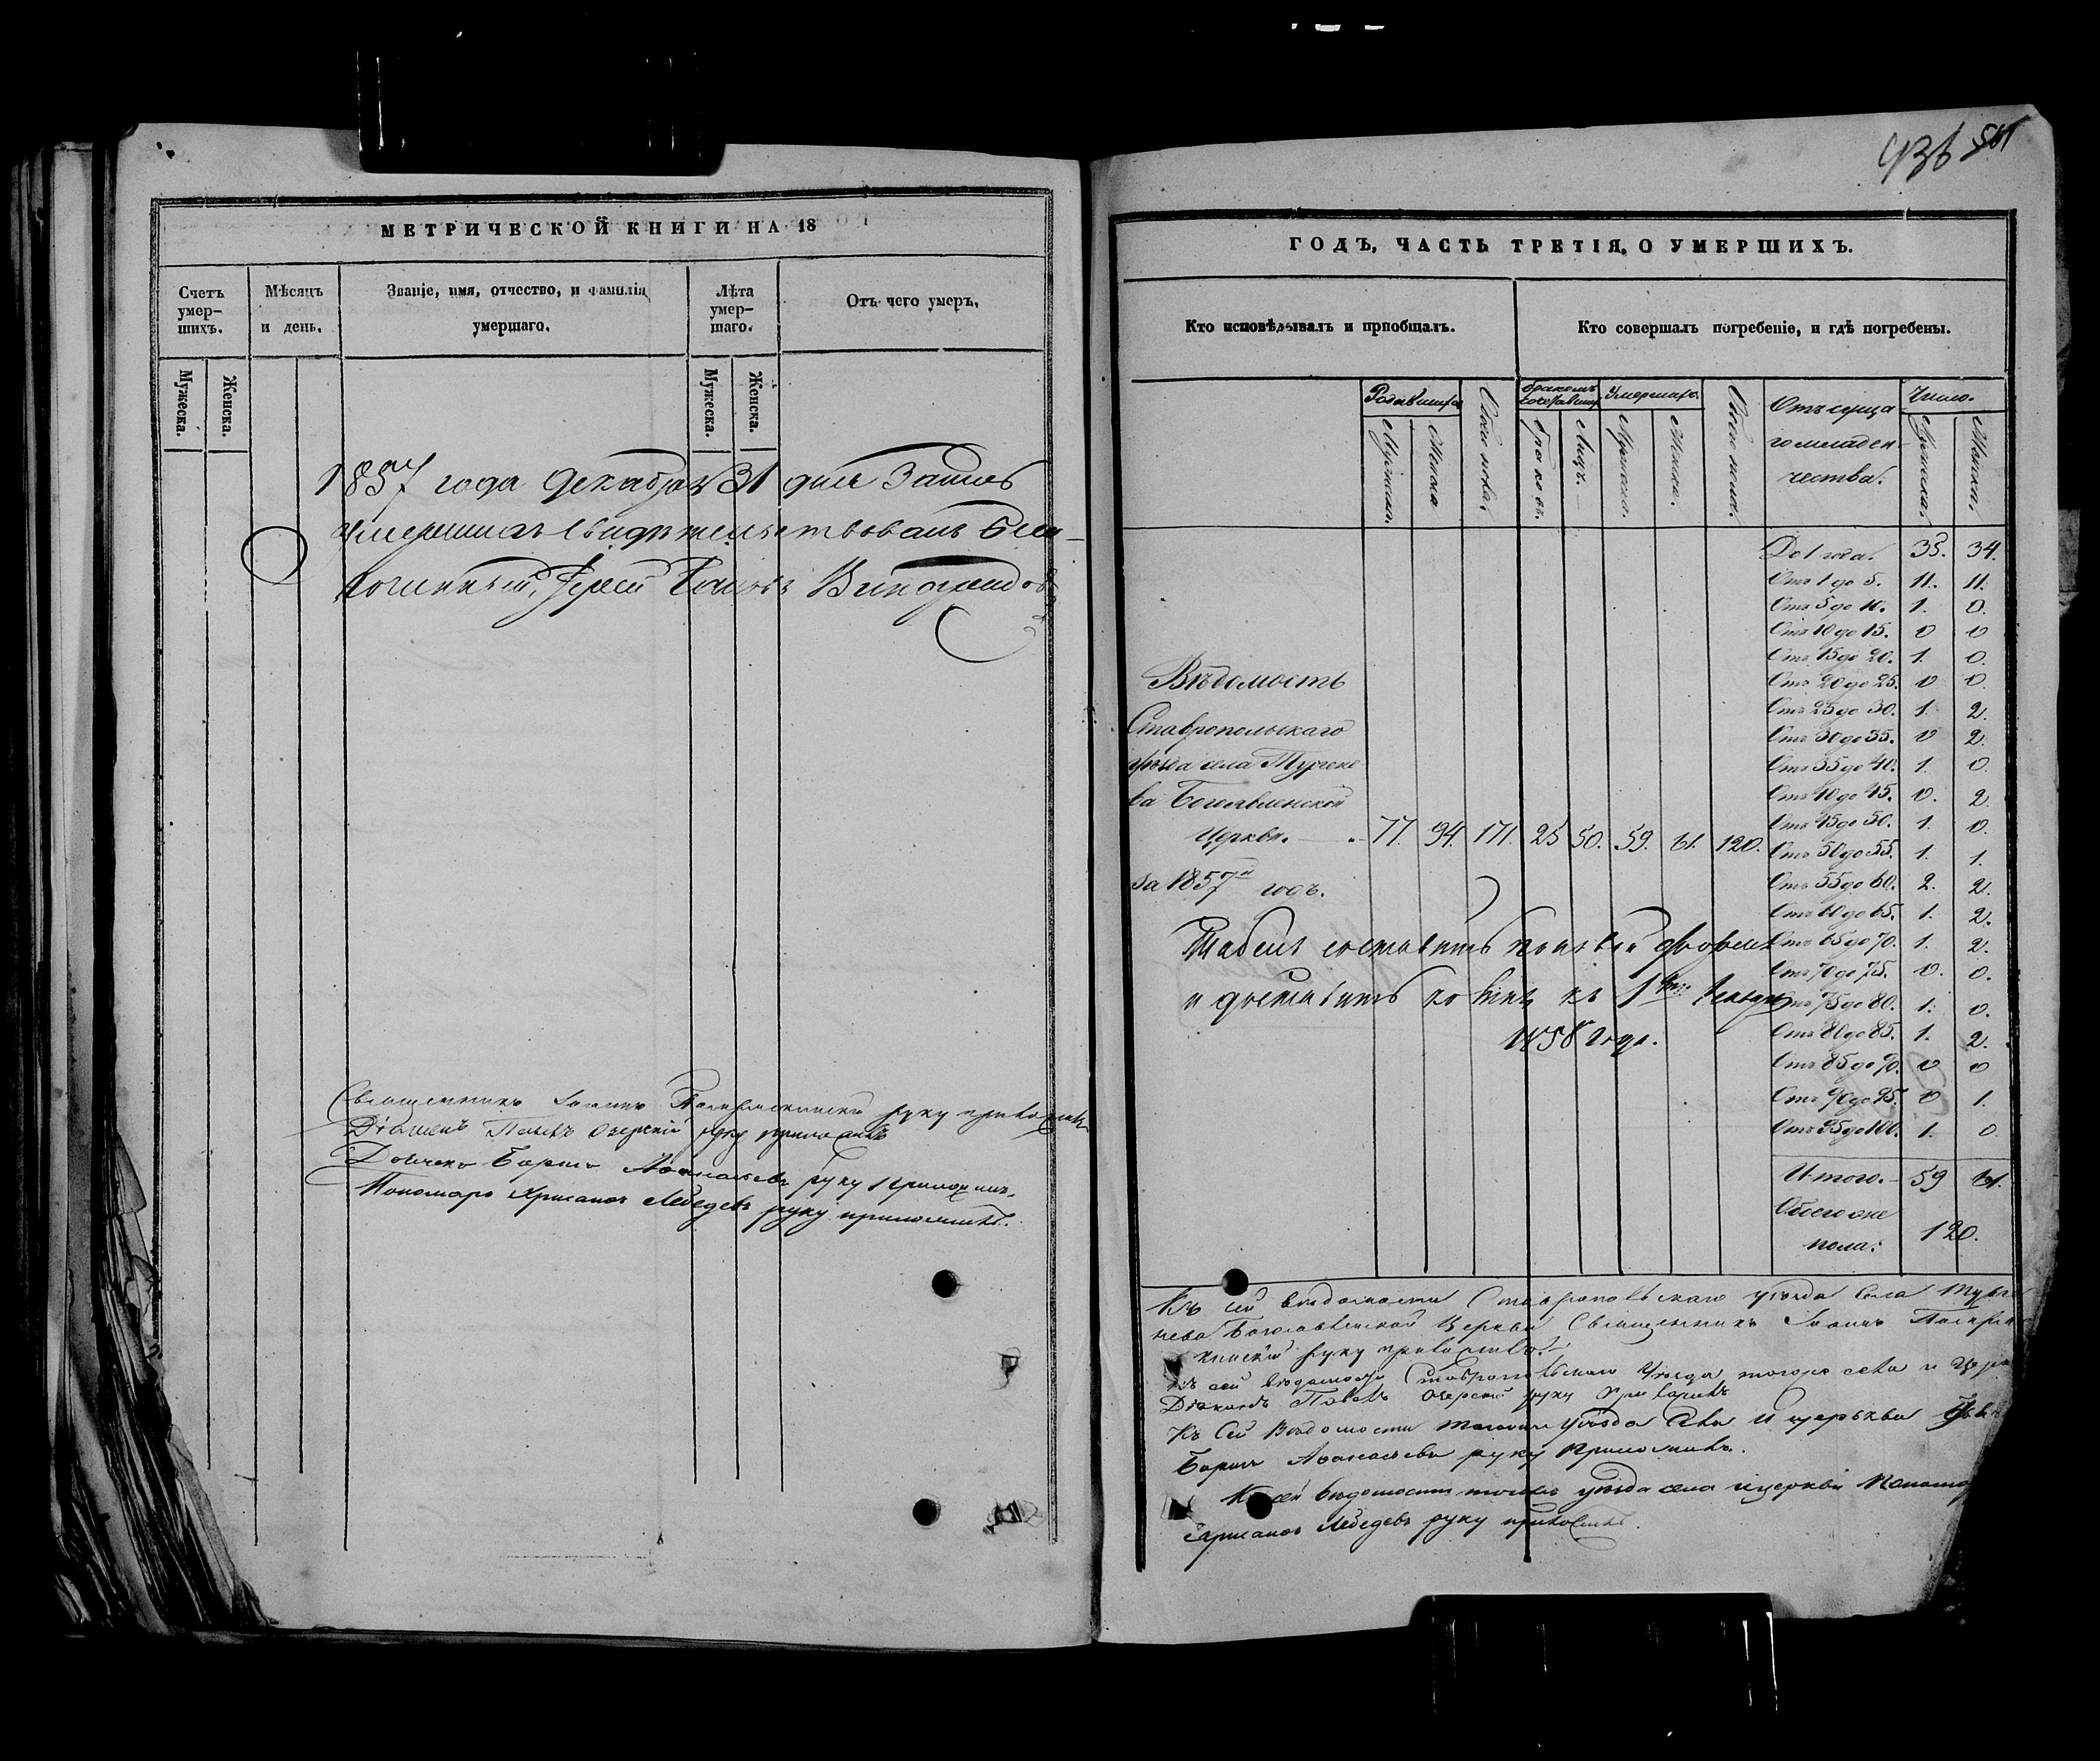 МЕТРИЧЕСКОЙ КНИГИ НА 18
Счетъ умер-шихъ.
Мѣсяцъ и день.
Званіе, имя, отчество, и фамилія умершаго.
Лѣта умер-шаго.
Отъ чего умеръ.
Мужеска.
Женска.
Мужеска.
Женска.
1857 года Декабря 31 дня Запись
умершихъ свидѣтельствовалъ Благо-
чинный, Іерей
Священникъ Іоаннъ руку приложилъ
Діаконъ Павелъ Озерскій руку приложилъ
Дьячекъ Борисъ Аѳанасьевъ руку приложилъ.
Пономарь Лебедевъ руку приложилъ.
936 501
ГОДЪ, ЧАСТЬ ТРЕТІЯ, О УМЕРШИХЪ.
Кто исповѣдывалъ и пріобщалъ.
Кто совершалъ погребеніе, и гдѣ погребены.
Родившихся
Мужеска.
Женска
Обоего пола.
бракомъ сочетавших
браковъ.
Лицъ.
Умершихъ.
Мужеска.
Женска.
Обоего пола.
Отъ сущаго младен-чества.
Число.
Мужеска.
Женска.
До 1 года. 35. 34.
Отъ 1 до 5. 11. 11.
Отъ 5 до 10. 1. 0.
Отъ 10 до 15. 0 0
Отъ 15 до 20. 1. 0.
Отъ 20 до 25. 0 0.
Отъ 25 до 30. 1. 2.
Отъ 30 до 35. 0 2.
Отъ 35 до 40. 1. 0.
Отъ 40 до 45. 0. 2.
Отъ 45 до 50. 1. 0.
Отъ 50 до 55. 1. 1.
Отъ 55 до 60. 2. 2.
Отъ 60 до 65. 1. 2.
Отъ 65 до 70. 1. 2.
Отъ 70 до 75. 0. 0.
Отъ 75 до 80. 1. 0.
Отъ 80 до 85. 1. 2.
Отъ 85 до 90. 0 0
Отъ 90 до 95. 0 1.
Отъ 95 до 100. 1. 0
Итого. 59 61.
Обоего пола: 120.
Вѣдомость
Ставропольскаго
уѣзда села Тургене
ва Богоявленской
Церкви. 77. 94. 171. 25 50. 59. 61. 120.
за 1857й годъ.
Табель составить по новой формѣ
и доставить ко мнѣ къ 1му Января
1858 года.
Къ сей вѣдомости Ставропольскаго уѣзда Села Турге
нева Богоявленской Церкви Священникъ Іоаннъ
руку приложилъ.
Къ сей вѣдомости Ставропольскаго Уѣзда тогоже села и Церкви
Діаконъ Павелъ Озерскій руку приложилъ
Къ Сей Вѣдомости тогоже Уѣзда Села и церькви
Борисъ Аѳанасьевъ руку приложилъ.
Къ сей вѣдомости тогоже уѣзда села и церкви Пономарь
Лебедевъ руку приложилъ.